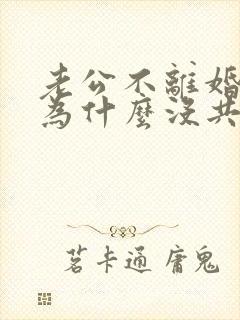 老公不離婚
為什麼沒共
茗卡通 庸鬼